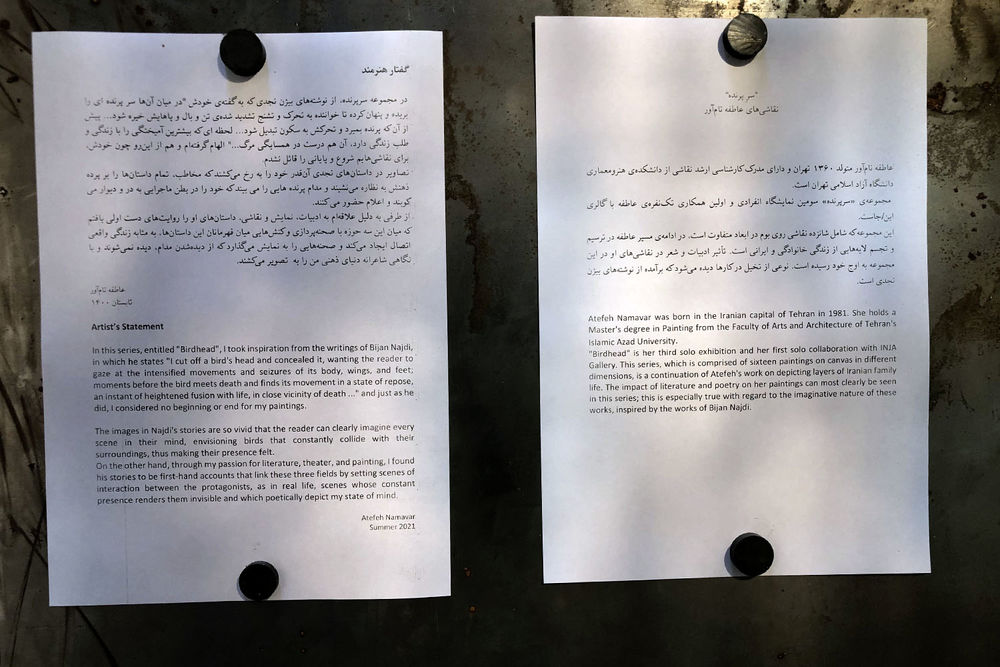 گفتار هنرمند
در مجموعه سرپرنده، از نوشته‌های بیژن نجدی که به گفته‌ی خودش "در میان آن‌ها سر پرنده ای را
بریده و پنهان کرده تا خواننده به تحرک و تشنج تشدید شده‌ی تن و بال و پاهایش خیره شود... پیش
از آن که پرنده بمیرد و تحرکش به سکون تبدیل شود... لحظه ای که بیشترین آمیختگی را با زندگی و
طلب زندگی دارد، آن هم درست در همسایگی مرگ..." الهام گرفته‌ام و هم از این‌رو چون خودش،
برای نقاشی‌هایم شروع و پایانی را قائل نشدم.
تصاویر در داستان‌های نجدی آن‌قدر خود را به رخ می‌کشند که مخاطب، تمام داستان‌ها را بر پرده
ذهنش به نظاره می‌نشیند و مدام پرنده هایی را می بیند که خود را در بطن ماجرایی به در و دیوار می
کوبند و اعلام حضور می‌کنند.
از طرفی به دلیل علاقه‌ام به ادبیات، نمایش و نقاشی، داستان‌های او را روایت‌های دست اولی یافتم
که میان این سه حوزه با صحنه‌پردازی و کنش‌هایی میان قهرمانان این داستان‌ها، به مثابه زندگی واقعی
اتصال ایجاد می‌کند و صحنه‌هایی را به نمایش می‌گذارد که از دیده‌شدن مدام، دیده نمی‌شوند و با
نگاهی شاعرانه دنیای ذهنی من را به تصویر می‌کشند.
عاطفه نام‌آور
تابستان ۱۴۰۰
Artist's Statement
In this series, entitled "Birdhead", I took inspiration from the writings of Bijan Najdi,
in which he states "I cut off a bird's head and concealed it, wanting the reader to
gaze at the intensified movements and seizures of its body, wings, and feet;
moments before the bird meets death and finds its movement in a state of repose,
an instant of heightened fusion with life, in close vicinity of death ..." and just as he
did, I considered no beginning or end for my paintings.
The images in Najdi's stories are so vivid that the reader can clearly imagine every
scene in their mind, envisioning birds that constantly collide with their
surroundings, thus making their presence felt.
On the other hand, through my passion for literature, theater, and painting, I found
his stories to be first-hand accounts that link these three fields by setting scenes of
interaction between the protagonists, as in real life, scenes whose constant
presence renders them invisible and which poetically depict my state of mind.
Atefeh Namavar
Summer 2021
"سر پرنده"
نقاشی‌های عاطفه نام‌آور
عاطفه نام‌آور متولد ۱۳۶۰ تهران و دارای مدرک کارشناسی ارشد نقاشی از دانشکده‌ی هنرومعماری
دانشگاه آزاد اسلامی تهران است.
مجموعه‌ی «سرپرنده» سومین نمایشگاه انفرادی و اولین همکاری تک‌نفره‌ی عاطفه با گالری
این/جاست.
این مجموعه که شامل شانزده نقاشی روی بوم در ابعاد متفاوت است، در ادامه‌ی مسیر عاطفه در ترسیم
و تجسم لایه‌هایی از زندگی خانوادگی و ایرانی است. تأثیر ادبیات و شعر در نقاشی‌های او در این
مجموعه به اوج خود رسیده است. نوعی از تخیل در کارها دیده می‌شود که برآمده از نوشته‌های بیژن
نجدی است.
Atefeh Namavar was born in the Iranian capital of Tehran in 1981. She holds a
Master's degree in Painting from the Faculty of Arts and Architecture of Tehran's
Islamic Azad University.
"Birdhead" is her third solo exhibition and her first solo collaboration with INJA
Gallery. This series, which is comprised of sixteen paintings on canvas in different
dimensions, is a continuation of Atefeh's work on depicting layers of Iranian family
life. The impact of literature and poetry on her paintings can most clearly be seen
in this series; this is especially true with regard to the imaginative nature of these
works, inspired by the works of Bijan Najdi.